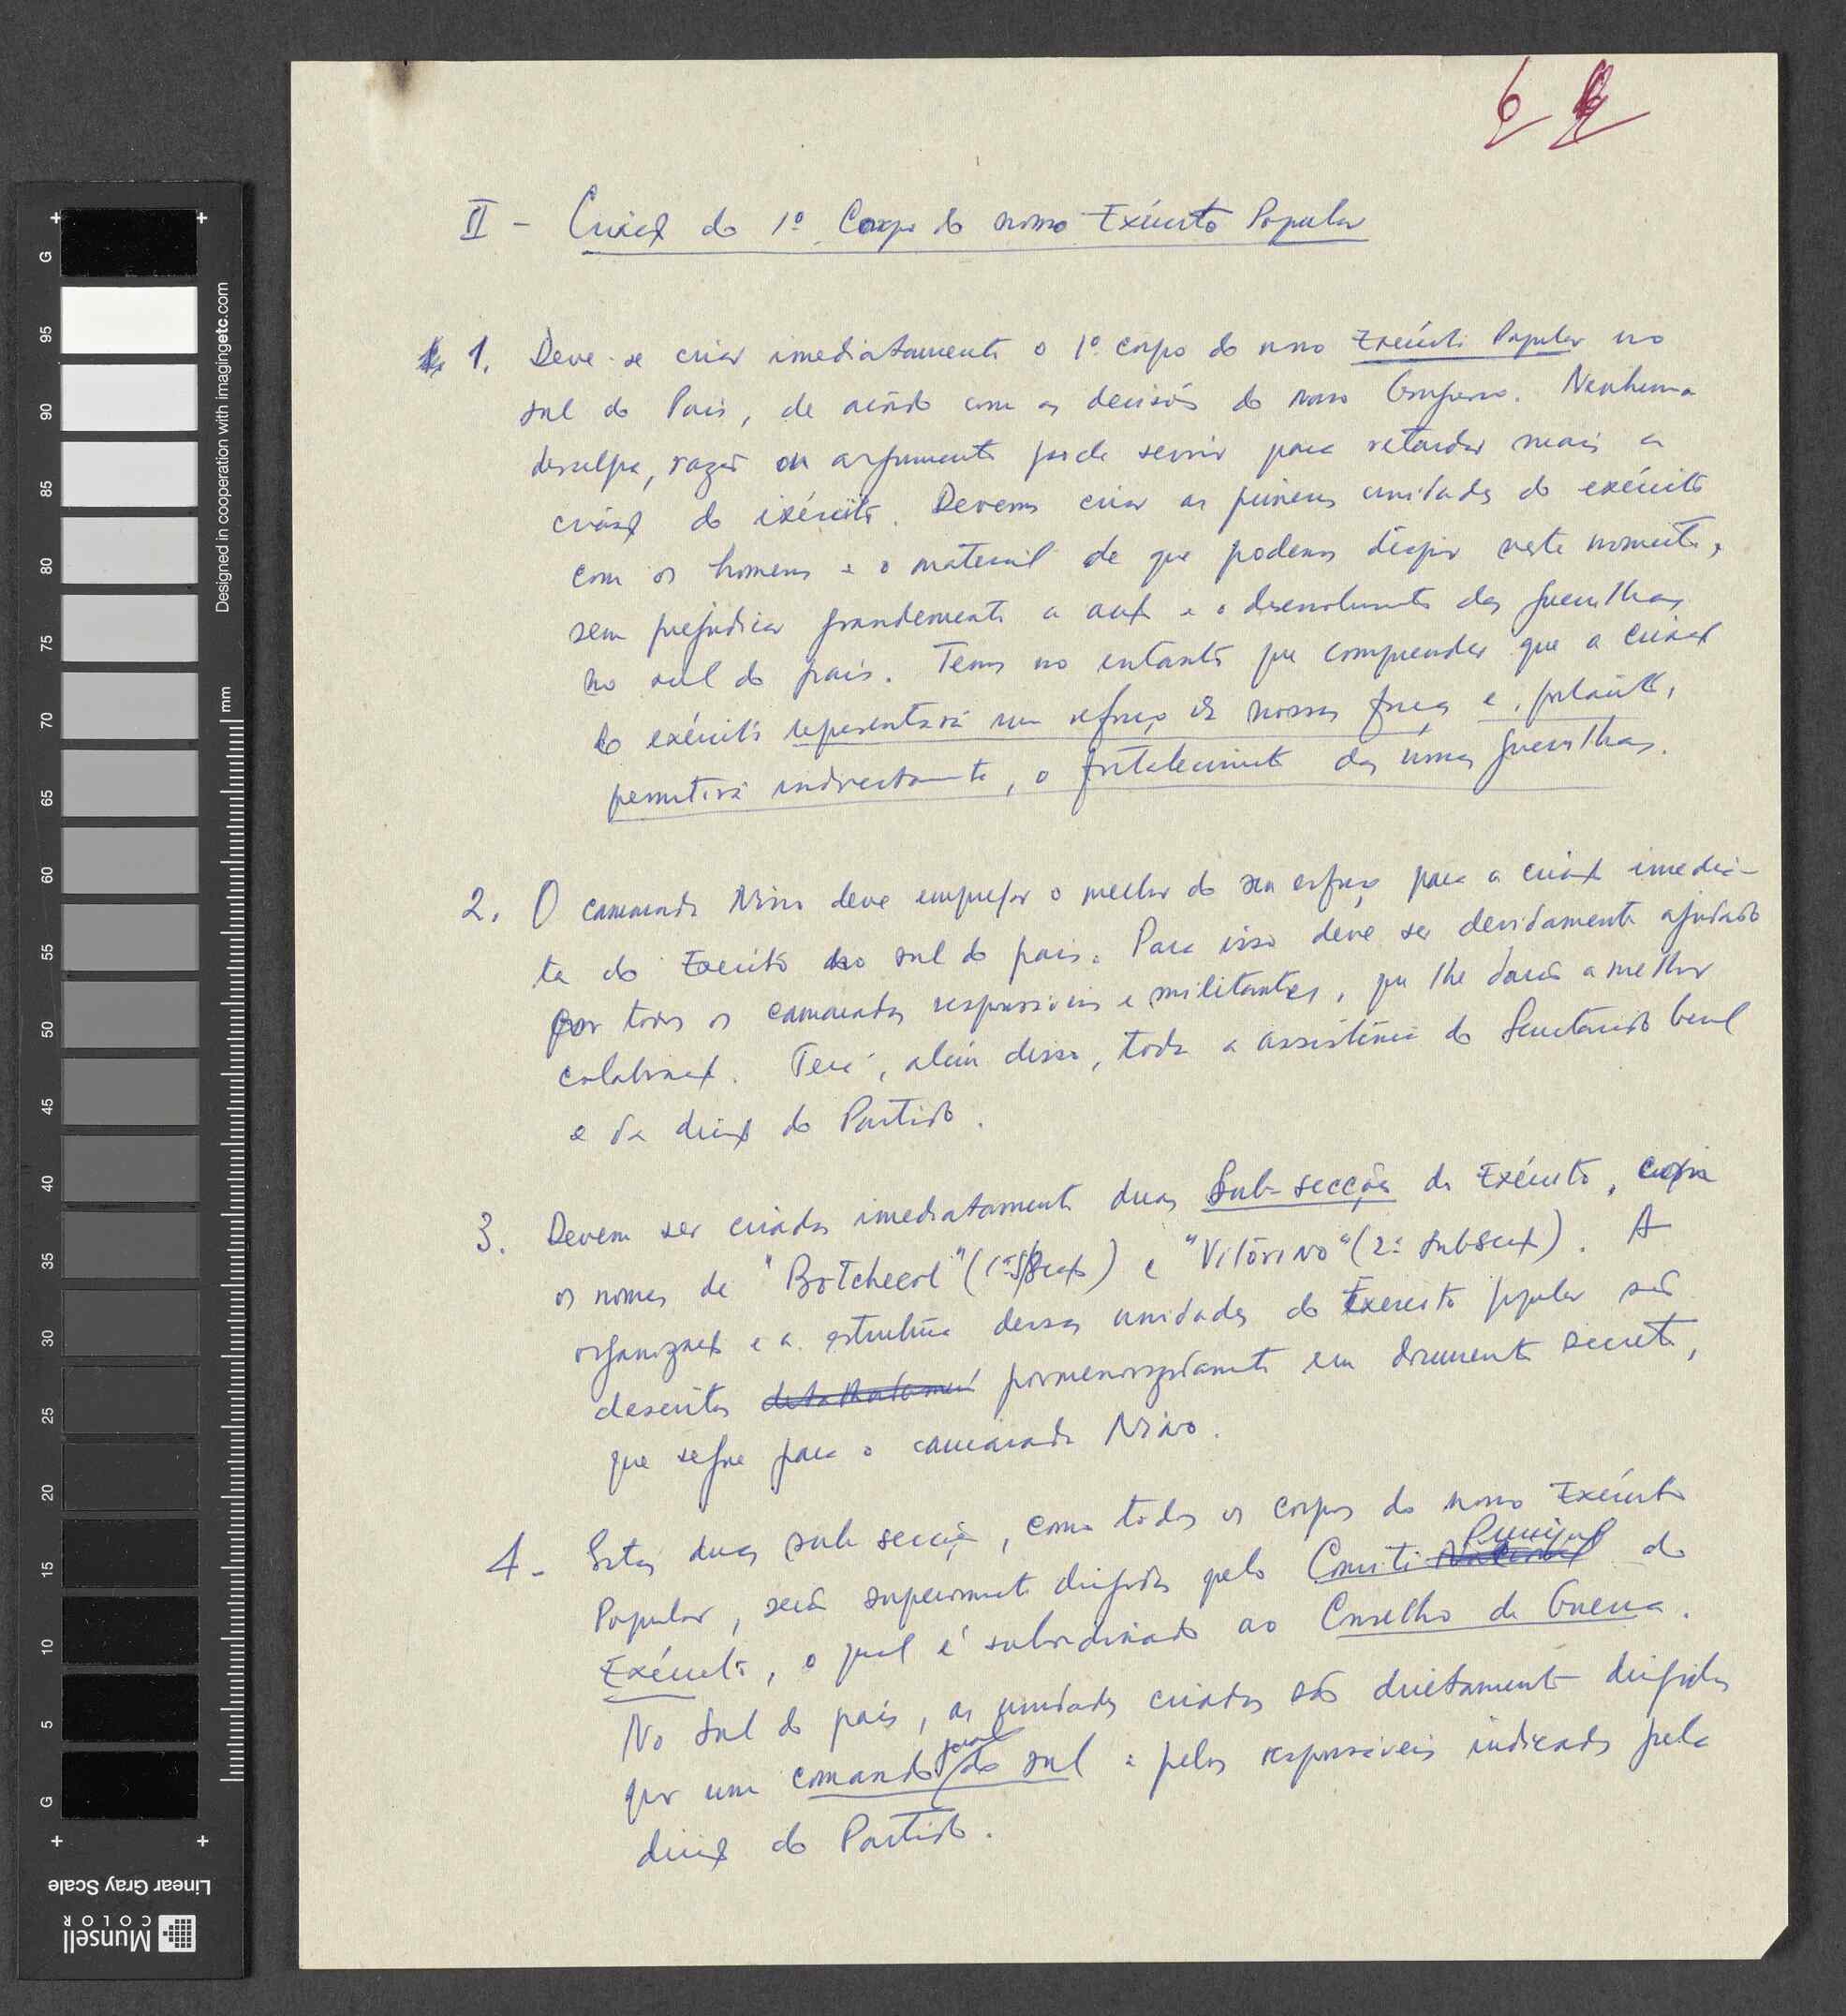 6
II - Criação do 1º Corpo do nosso Exército Popular
1. Deve-se criar imediatamente o 1º corpo do nosso Exército Popular no
sul do Pais, de acôrdo com as decisões do nosso Congresso. Nenhuma
desculpa, razão ou argumento pode servir para retardar mais a
criação do exército. Devemos criar as primeiras unidades do exército
com os homens e o material de que podemos dispor neste momento,
sem prejudicar grandemente a acção e o desenvolvimento das guerrilhas
no sul do país. Temos no entanto que compreender que a criação
do exército representará um reforço das nossas forças e, portanto,
permitirá indirectamente, o fortalecimento das nossas guerrilhas.
2. O camarada Nino deve empregar o melhor do seu esforço para a criação imedia-
ta do Exército no sul do país. Para isso deve ser devidamente ajudado
por todos os camaradas responsáveis e militantes, que lhe darão a melhor
colaboração. Terá, além disso, toda a assistência do Secretariado Geral
e da direcção do Partido.
3. Devem ser criadas imediatamente duas Sub-secções do Exército, com
os nomes de "Botchecol" (1ª S/Secção) e "Vitorino" (2ª subsecção). A
organização e a estrutura dessas unidades do Exército popular são
descritas pormenorizadamente em documento secreto,
que segue para o camarada Nino.
4- Estas duas sub secções, como todos os corpos do nosso Exército
Popular, serão superiormente dirigidas pelo Comité Principal do
Exército, o qual é subordinado ao Conselho de Guerra.
No Sul do país, as unidades criadas são directamente dirigidas
por um comando geral do sul e pelos responsáveis indicados pela
direcção do Partido.
+ +
G
95
90
85
80
75
70
65
60
55
50
45
40
35
30
25
20
15
10
5
G
+ +
mm
Designed in cooperation with imagingetc.com
Linear Gray Scale
Munsell
COLOR